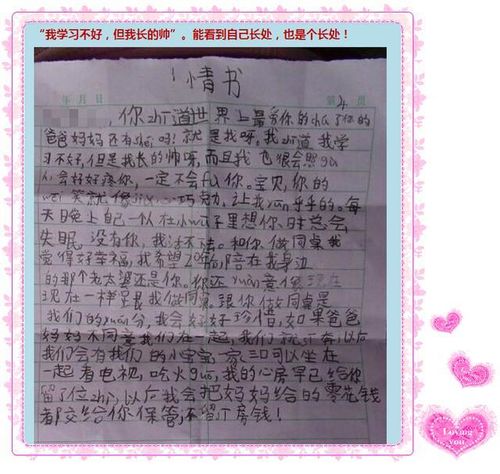 “我学习不好，但我长的帅”。能看到自己长处，也是个长处！
情书
年 月 日 第 页
，你zhi道世界上最爱你的chu了你的
爸爸妈妈还有shei吗？就是我呀。我zhi道我学
习不好，但是我长的帅呀，而且我也很会照gu
人，会好好疼你，一定不会fu你。宝贝，你的
wei笑就像巧克力，让我乎乎的。每
天晚上自己一个人在小wu子里想你时总会
失眠，没有你，我活不。和你做同桌我
觉得好幸福，我希望陪在我身边
的那个老太婆还是你。你还yuan意像现在
现在一样跟我做同桌。跟你做同桌是
我们的yuan分，我会好好珍惜，如果爸爸
妈妈不同意我们在一起，我们就奔，以后
我们会有我们的小宝宝，一家三口可以坐在
一起看电视，吃火guo，我的心房早已给你
留了位zhi，以后我会把妈妈给的零花钱
都交给你保管，不留房钱！
Loving you